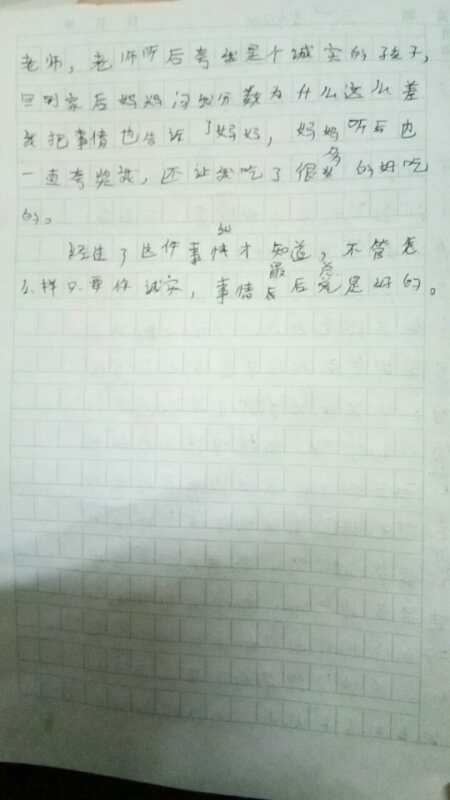 老师，老师听后夸我是个诚实的孩子，
回到家后妈妈问我分数为什么这么差
我把事情也告诉了妈妈，妈妈听后也
一直夸奖我，还让我吃了很多的好吃
的。
经过了这件事情我才知道，不管怎
么样只要你诚实，事情最后总是好的。